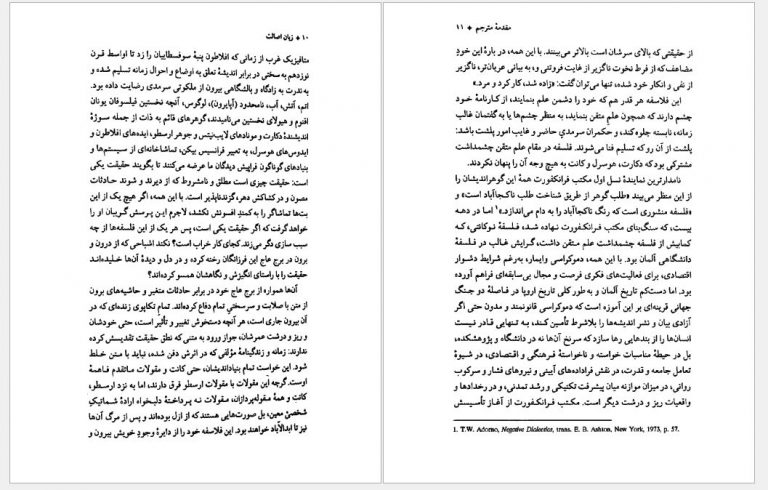 ۱۰ ♦ زبان اصالت
متافیزیک غرب از زمانی که افلاطون پنبهٔ سوفسطاییان را زد تا اواسط قرن
نوزدهم به سختی در برابر اندیشهٔ تعلق به اوضاع و احوال زمانه تسلیم شده و
به‌ندرت به زادگاه و بالدگاهی بیرون از ملکوتی سرمدی رضایت داده بود.
اتم، آتش، آب، نامحدود (آپایرون)، لوگوس، آنچه نخستین فیلسوفان یونان
اقنوم و هیولای نخستین می‌نامیدند، گوهرهای قائم به ذات از جمله سوژهٔ
اندیشندهٔ دکارت و مونادهای لایب‌نیتس و جوهر ارسطو، ایده‌های افلاطون و
ایدوس‌های هوسرل، به تعبیر فرانسیس بیکن، تماشاخانه‌ای از سیستم‌ها و
بنیادهای گوناگون فراپیش دیدگان ما عرضه می‌کنند تا بگویند حقیقت یکی
است: حقیقت چیزی است مطلق و نامشروط که از دیرند و شوند حادثات
مصون و در کشاکش دهر، گزندناپذیر است. با این همه، اگر هیچ یک از این
بت‌ها تماشاگر را به کمند افسونش نکشد، لاجرم این پرسش گریبان او را
خواهد گرفت که اگر حقیقت یکی است، پس هر یک از این فلسفه‌ها از چه
سبب سازی دگر می‌زند. کجای کار خراب است؟ نکند اشباحی که از درون و
برون در برج عاج این فرزانگان رخنه کرده و در دل و دیدهٔ آن‌ها خلیده‌اند
حقیقت را با راستای انگیزش و نگاهشان همسو کرده‌اند؟
آن‌ها همواره از برج عاج خود در برابر حادثات متغیر و حاشیه‌های برون
از متن با صلابت و سرسختی تمام دفاع کرده‌اند. تمام تکاپوی زنده‌ای که در
آن بیرون جاری است، هر آنچه دستخوش تغییر و تأثیر است، حتی خودشان
و ریز و درشت عمرشان، جواز ورود به متنی که نطق حقیقت تقدیسش کرده
ندارند: زمانه و زندگینامهٔ مؤلفی که در اثرش دفن شده، نباید با متن خلط
شود. این خواست تمام بنیاداندیشان، حتی کانت و مقولات ماتقدم فاهمهٔ
اوست. گرچه این مقولات با مقولات ارسطو فرق دارند، اما به نزد ارسطو،
کانت و همهٔ مقوله‌پردازان، مقولات نه پرداختهٔ دلبخواه ارادهٔ شوماتیک
شخصی معین، بل صورت‌هایی هستند که از ازل بوده‌اند و پس از مرگ آن‌ها
نیز تا ابدالآباد خواهند بود. این فلاسفه خود را از دایرهٔ وجود خویش بیرون و
مقدمهٔ مترجم ♦ ۱۱
از حقیقتی که بالای سرشان است بالاتر می‌بینند. با این همه، در بارهٔ این خودِ
مضاعف که از فرط نخوت ناگزیر از غایت فروتنی و، به بیانی عریان‌تر، ناگزیر
از نفی و انکار خود شده، تنها می‌توان گفت: «زاده شد، کار کرد و مرد.»
این فلاسفه هر قدر هم که خود را دشمن علم بنمایند، از کارنامهٔ خود
چشم دارند که همچون علم متقن بنماید، به منظر چشم‌ها یا به گفتمان غالب
زمانه، نابسته جلوه کند، و حکمران سرمدیِ حاضر و غایب امور پلشت باشد:
پلشت از آن رو که تسلیم فنا می‌شوند. فلسفه در مقام علم متقن چشمداشت
مشترکی بود که دکارت، هوسرل و کانت به هیچ وجه آن را پنهان نکردند.
نامدارترین نمایندهٔ نسل اول مکتب فرانکفورت همهٔ این گوهراندیشان را
از این منظر می‌بیند «طلب گوهر از طریق شناخت طلب ناکجاآباد است» و
«فلسفه منشوری است که رنگ ناکجاآباد را به دام می‌اندازد.»۱ اما در دهه
بیست، که سنگ‌بنای مکتب فرانکفورت نهاده شد، فلسفهٔ نوکانتی، که
کمابیش از فلسفه چشمداشت علم متقن داشت، گرایش غالب در فلسفهٔ
دانشگاهی آلمان بود. با این همه، دموکراسی وایمار، به‌رغم شرایط دشوار
اقتصادی، برای فعالیت‌های فکری فرصت و مجال بی‌سابقه‌ای فراهم آورده
بود. اما دست‌کم تاریخ آلمان و به‌طور کلی تاریخ اروپا در فاصلهٔ دو جنگ
جهانی قرینه‌ای بر این آموزه است که دموکراسی قانونمند و مدون حتی اگر
آزادی بیان و نشر اندیشه‌ها را بلاشرط تأمین کند، به تنهایی قادر نیست
انسان‌ها را از بندهایی رها سازد که سرنخ آن‌ها نه در دانشگاه و پژوهشکده،
بل در حیطهٔ مناسبات خواسته و ناخواستهٔ فرهنگی و اقتصادی، در شیوهٔ
تعامل جامعه و قدرت، در نقش فراداده‌های آیینی و نیروهای فشار و سرکوب
روانی، در میزان موازنه میان پیشرفت تکنیکی و رشد تمدنی، و در رخدادها و
واقعیات ریز و درشت دیگر است. مکتب فرانکفورت از آغاز تأسیسش
1. T.W. Adorno, Negative Dialectics, trans. E. B. Ashton, New York, 1973, p. 57.